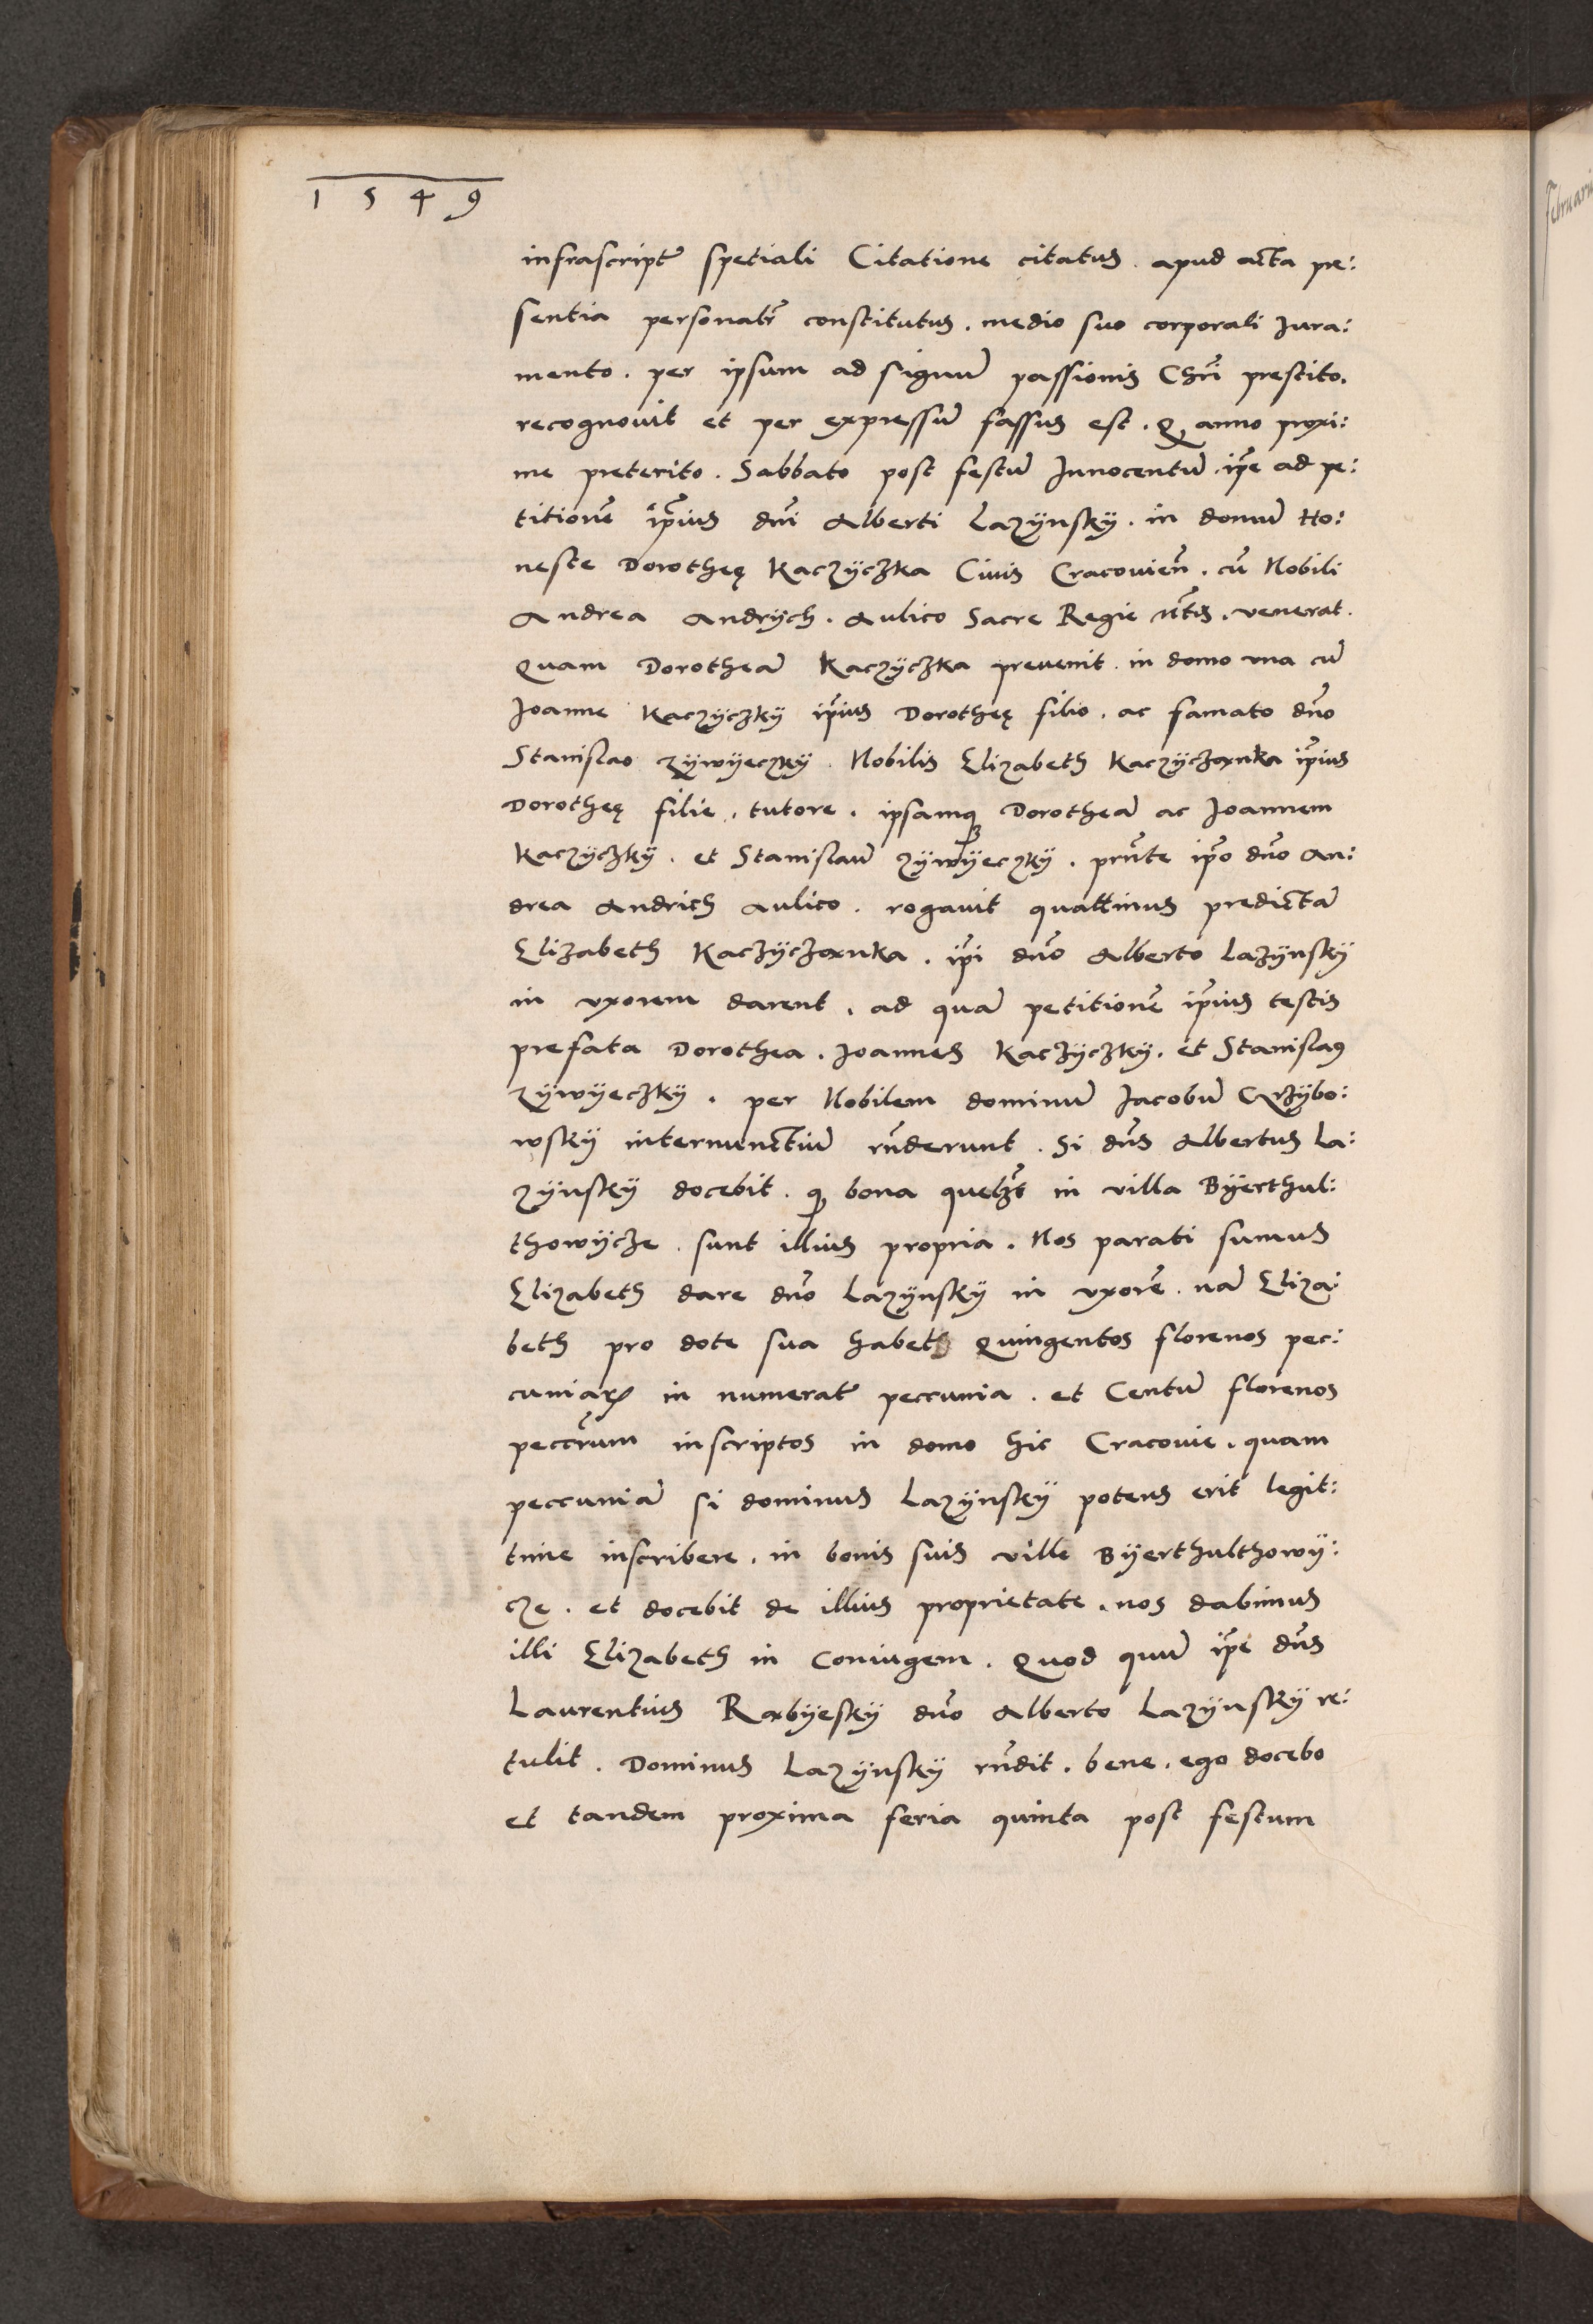 1549
infrascripte spetiali Citatione citatus. apud acta pre:
sentia personalr̃ constitutus. medio suo corporali Jura:
mento. per ipsum ad signũ passionis Chri᷃ prestito.
recognovit et per expressũ fassus est. Q anno proxi:
me preterito. Sabbato post festũ Innocentũ ip̃e ad pe:
titionẽ ip̃ius dñi Alberti Lazÿnskÿ. in domũ Ho:
neste Dorotheę Kaczÿczka Civis Cracovieñ. cũ Nobili
Andrea Andrÿch. Aulico Sacre Regie Mt̃is. venerat.
Quam Dorotheã Kaczÿczka prevenit. in domo una cũ
Joanne Kaczÿczkÿ ip̃ius Dorotheę filio. ac famato dño
Stanislao Zÿwÿeczkÿ. Nobilis Elizabeth Kaczÿczanka ip̃ius
Dorotheę filie. tutore. ipsamq Dorotheã ac Joannem
Kaczÿczkÿ. et Stanislaũ Zÿwÿeczkÿ. prñte ip̃o dño An:
drea Andrich Aulico. rogavit quattinus predictã
Elizabeth Kaczÿczanka. ip̃i dño Alberto Lazÿnskÿ
in uxorem darent. ad quã petitionẽ ip̃ius testis
prefata Dorothea. Joannes Kaczÿczkÿ. et Stanislaꝰ
Zÿwÿeczkÿ. per Nobilem dominũ Jacobũ Grzÿbo:
wskÿ internunctiũ rñderunt. Si dñs Albertus La:
zÿnskÿ docebit. q bona quelꝫt in villa Bÿerthul:
thowÿcze. sunt illius propria. Nos parati sumus
Elizabeth dare dño Lazÿnskÿ in uxorẽ. nã Eliza:
beth pro dote sua habet Quingentos florenos pec:
cuniaꝝ in numerate peccunia. et Centũ florenos
peccr̃um inscriptos in domo hic Cracovie. quam
peccuniã si dominus Lazÿnskÿ potens erit legit:
time inscribere. in bonis suis ville Bÿerthulthowÿ:
cze. et docebit de illius proprietate. nos dabimus
illi Elizabeth in Coniugem. Quod quũ ip̃e dñs
Laurentius Rabÿeskÿ dño Alberto Lazÿnskÿ re:
tulit. Dominus Lazÿnskÿ rñdit. bene. ego docebo
et tandem proxima feria quinta post festum